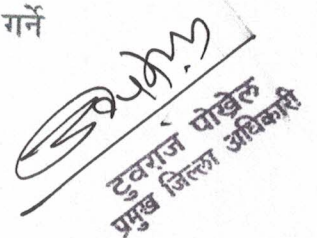 गर्ने
टुवराज पोखेल
प्रमुख जिल्ला अधिकारी